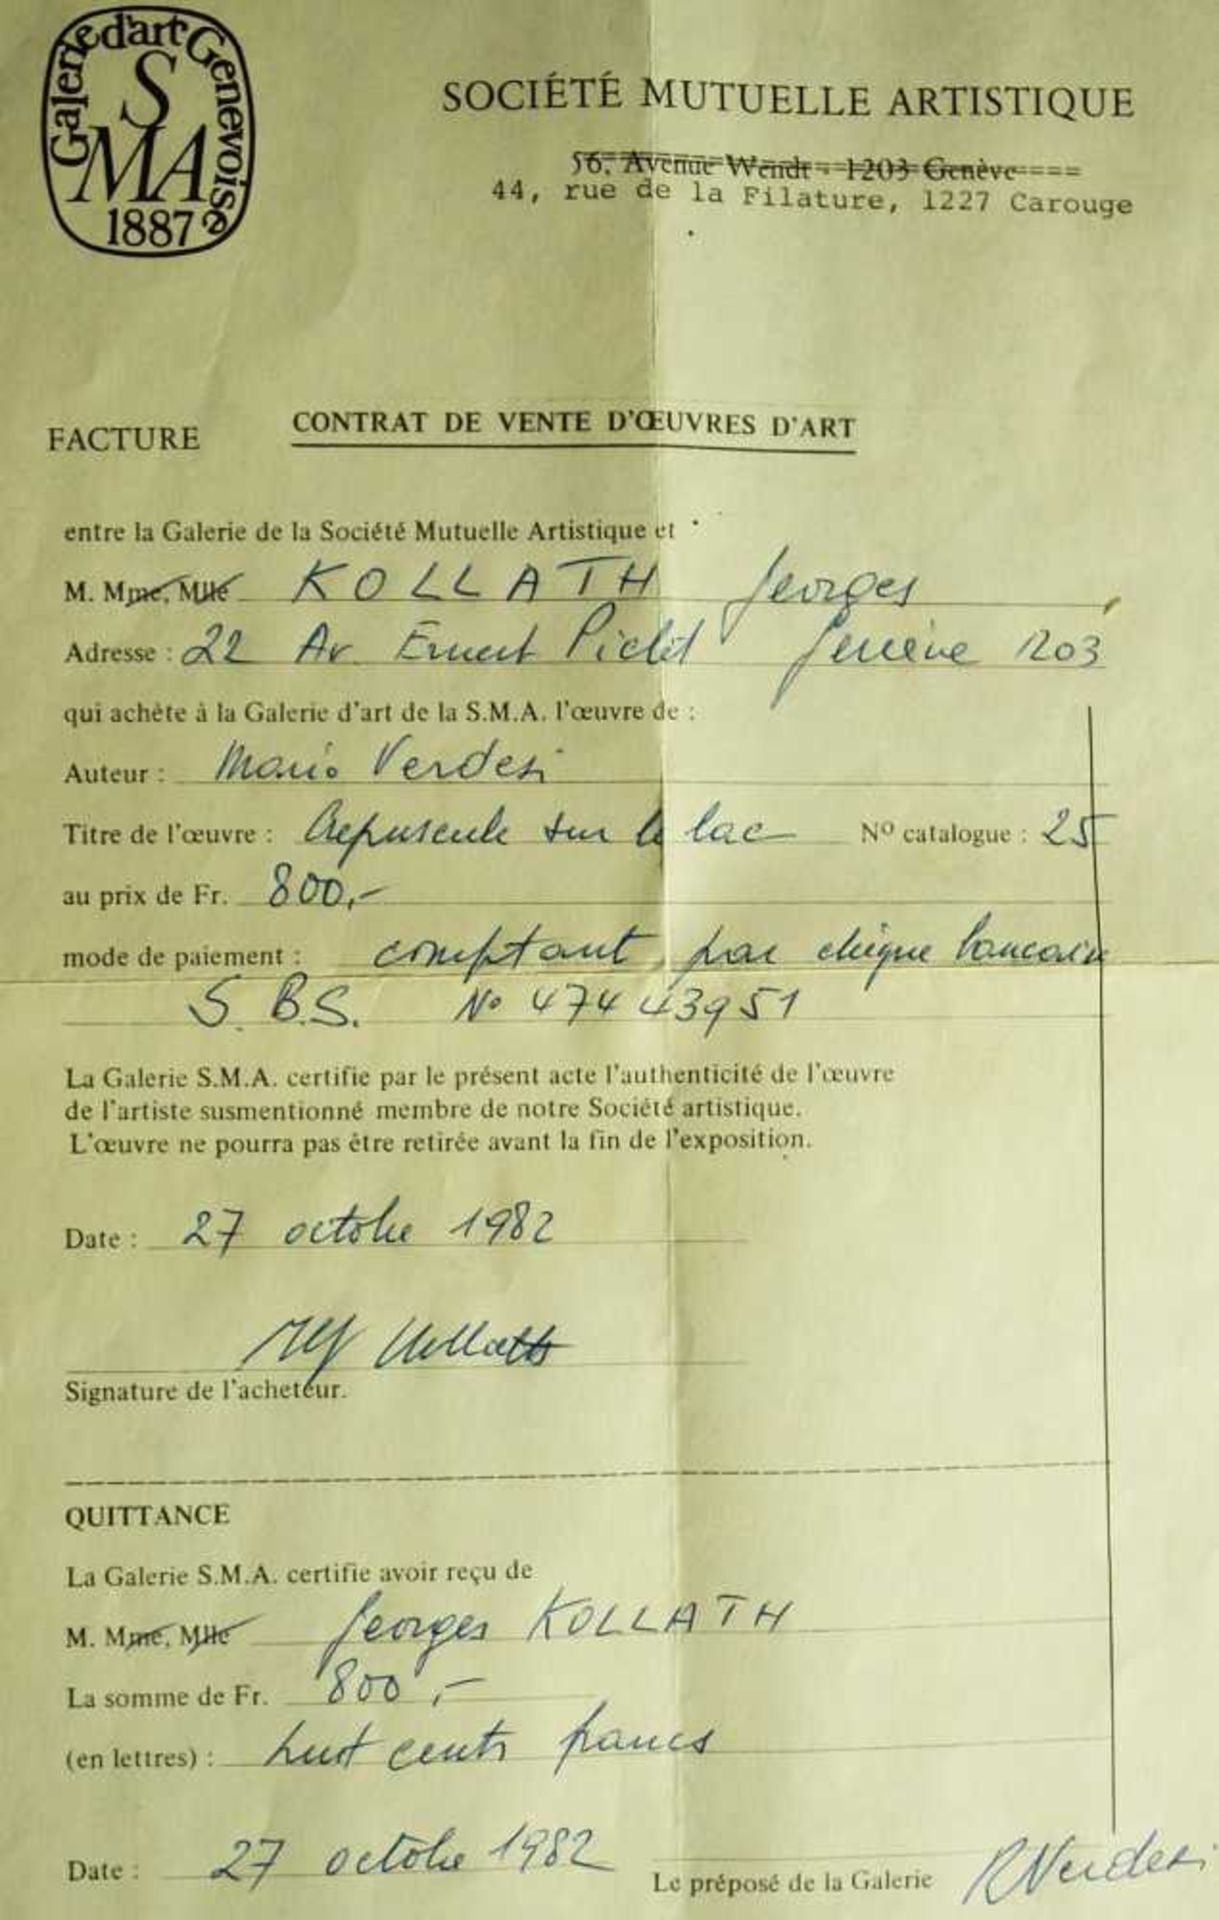 Galerie d'art Genevoise
SMA
1887
SOCIÉTÉ MUTUELLE ARTISTIQUE
56, Avenue Wendt - 1203 Genève
44, rue de la Filature, 1227 Carouge
FACTURE
CONTRAT DE VENTE D'ŒUVRES D'ART
entre la Galerie de la Société Mutuelle Artistique et
M. Mme, Mlle KOLLATH Georges
Adresse : 22 Av Ernest Pictet Genève 1203
qui achète à la Galerie d'art de la S.M.A. l'œuvre de :
Auteur : Mario Verdesi
Titre de l'œuvre : Crepuscule sur le lac Nº catalogue : 25
au prix de Fr. 800,-
mode de paiement : comptant, par chèque bancaire
S.B.S. No 47443951
La Galerie S.M.A. certifie par le présent acte l'authenticité de l'œuvre
de l'artiste susmentionné membre de notre Société artistique.
L'œuvre ne pourra pas être retirée avant la fin de l'exposition.
Date : 27 octobre 1982
Kollath
Signature de l'acheteur.
QUITTANCE
La Galerie S.M.A. certifie avoir reçu de
M. Mme, Mlle Georges KOLLATH
La somme de Fr. 800,-
(en lettres) : huit cents francs
Date : 27 octobre 1982
Le préposé de la Galerie RVerdesi